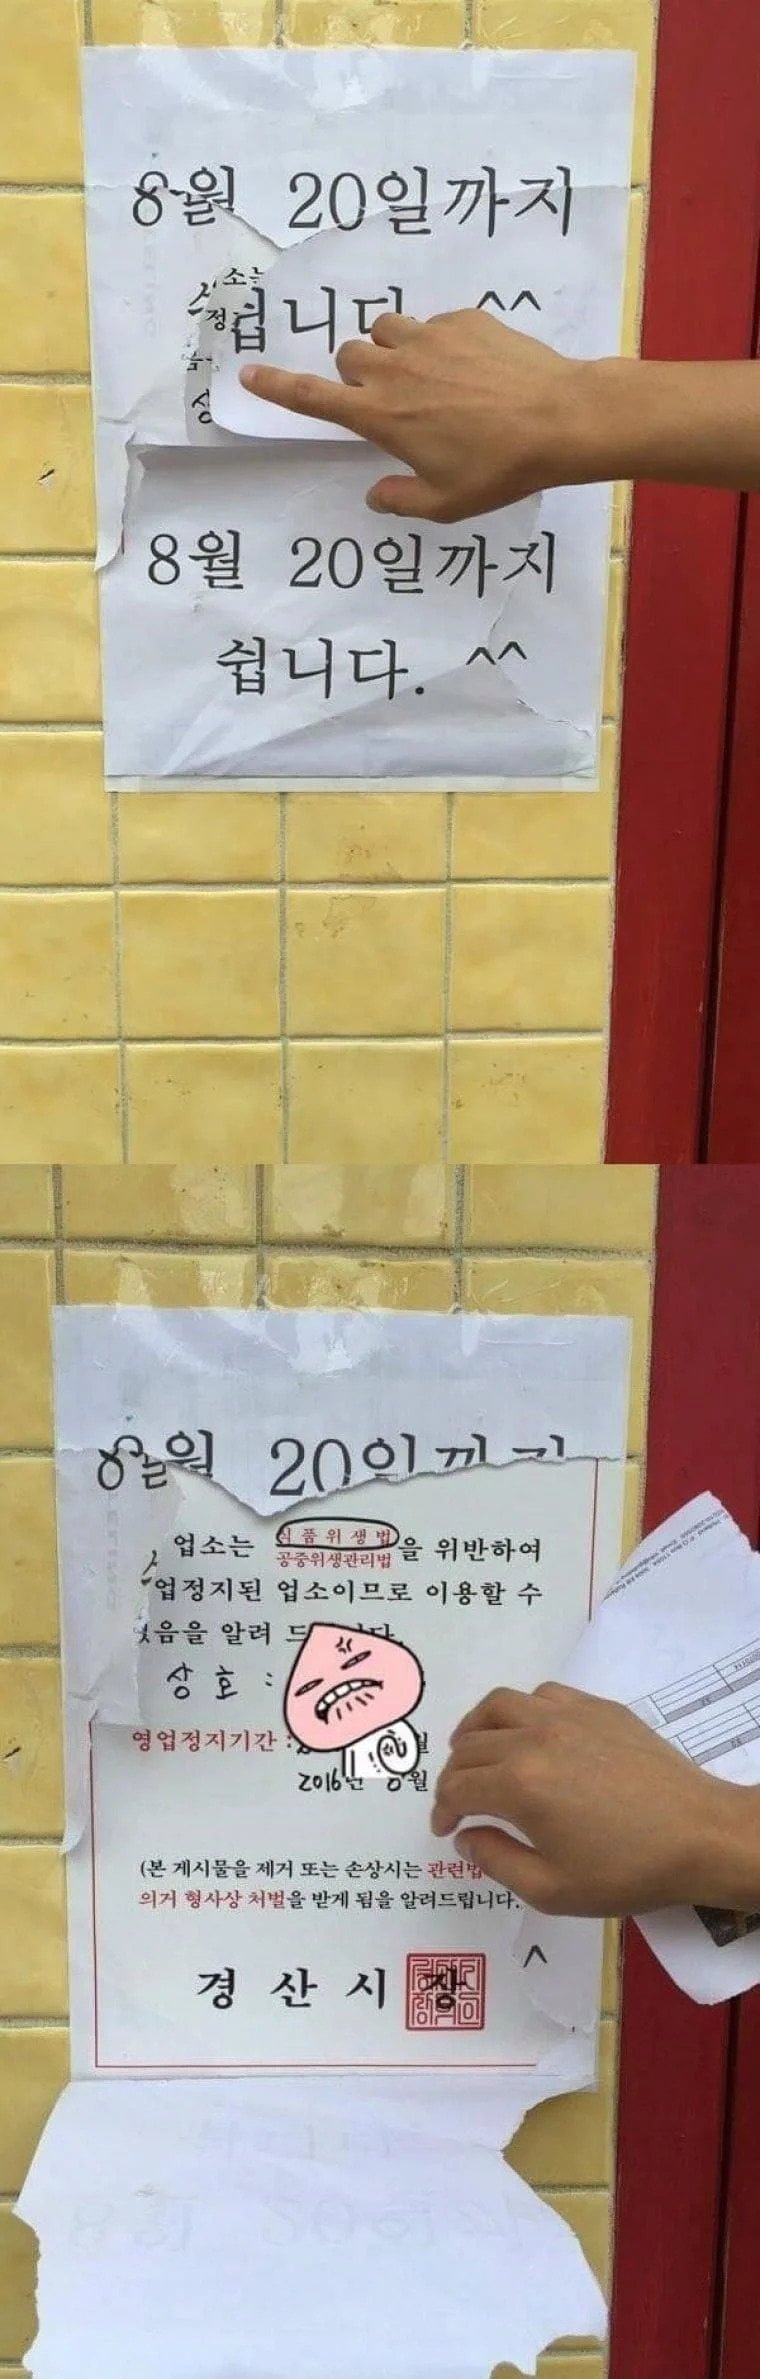 8월 20일까지
쉽니다. ^^
8월 20일까지
쉽니다. ^^
8월 20일까지
업소는 식품위생법
공중위생관리법 을 위반하여
업정지된 업소이므로 이용할 수
없음을 알려 드
상호 :
영업정지기간 :
2016년 8월
(본 게시물을 제거 또는 손상시는 관련법
의거 형사상 처벌을 받게 됨을 알려드립니다.
^
경산시장